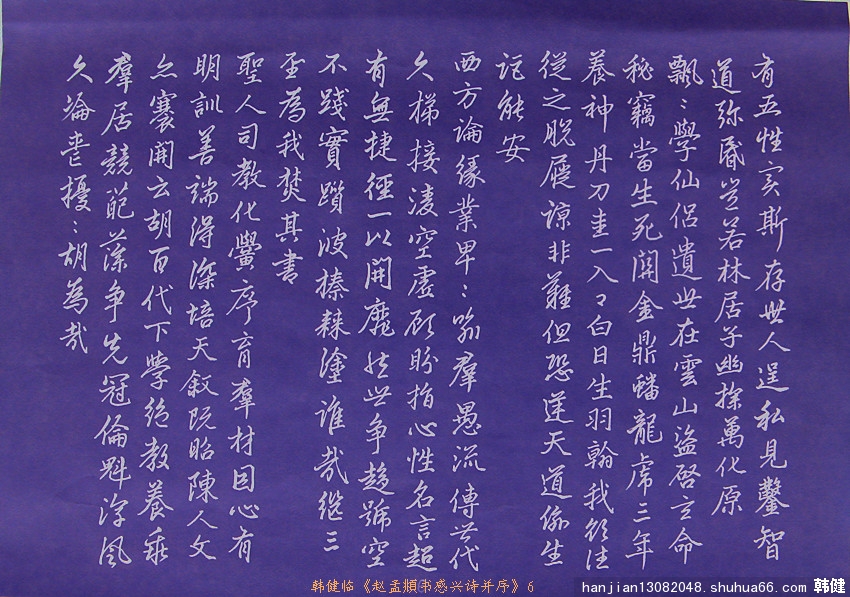 有五性實斯存世人逞私見鑿智
道弥昏豈若林居子幽探萬化原
飄〻學仙侶遺世在雲山盜啓玄命
秘竊當生死關金鼎蟠龍虎三年
養神丹刀圭一入口白日生羽翰我欲往
從之脫屣諒非難但恐逆天道偷生
詎能安
西方論緣業卑〻喻羣愚流傳世代
久梯接凌空虛顧盼指心性名言超
有無捷徑一以開靡然世争趨號空
不踐實躓彼榛棘塗誰哉繼三
聖為我焚其書
聖人司教化黌序育羣材因心有
明訓善端得深培天叙既昭陳人文
亦褰開云胡百代下學絕教養乖
羣居競葩藻争先冠倫魁淳風
久淪喪擾〻胡為哉
韩健临《赵孟頫书感兴诗并序》6
hanjian13082048.shuhua66.com 韩健